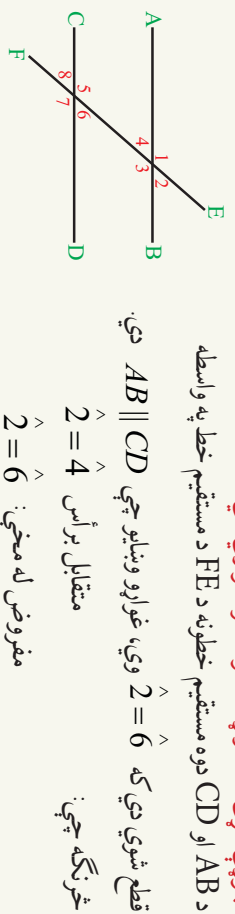 د AB او CD دوه مستقیم خطونه د FE د مستقیم خط په واسطه
قطع شوي دي که 2̂ = 6̂ وي، غواړو وښایو چې AB || CD دي.
څرنګه چې: 2̂ = 4̂ متقابل برأس
مفروض له مخې: 2̂ = 6̂
E
A
B
1
2
4
3
C
D
5
6
8
7
F